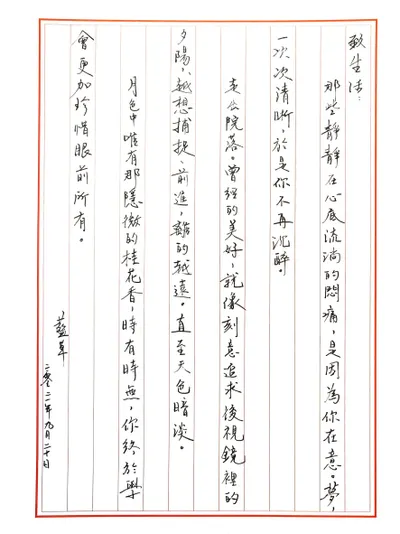 致生活：
那些靜靜在心底流淌的悶痛，是因為你在意。夢，
一次次清晰，於是你不再沉醉。
走入院落。曾經的美好，就像刻意追求後視鏡裡的
夕陽，越想捕捉、前進，離的越遠。直至天色暗淡。
月色中唯有那隱微的桂花香，時有時無，你終於學
會更加珍惜眼前所有。
藍草
二零二二年九月二十日